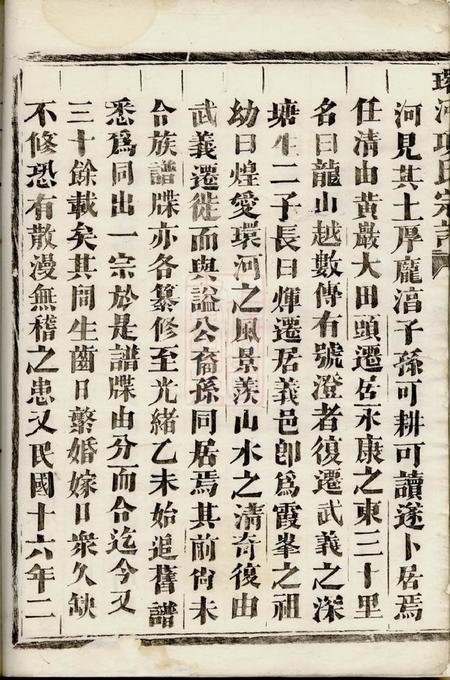 環河項氏宗譜
河見其土厚龐湻子孫可耕可讀遂卜居焉
任清由黃巖大田頭遷居永康之東三十里
名曰龍山越數傳有號澄者復遷武義之深
塘生二子長曰煇遷居義邑卽為霞峯之祖
幼曰煌愛環河之風景羨山水之清奇復由
武義遷徙而與謚公裔孫同居焉其前尙未
合族譜牒亦各纂修至光緒乙未始追舊譜
悉爲同出一宗於是譜牒由分而合迄今又
三十餘載矣其間生齒日繁婚嫁日衆久缺
不修恐有散漫無稽之患又民國十六年二